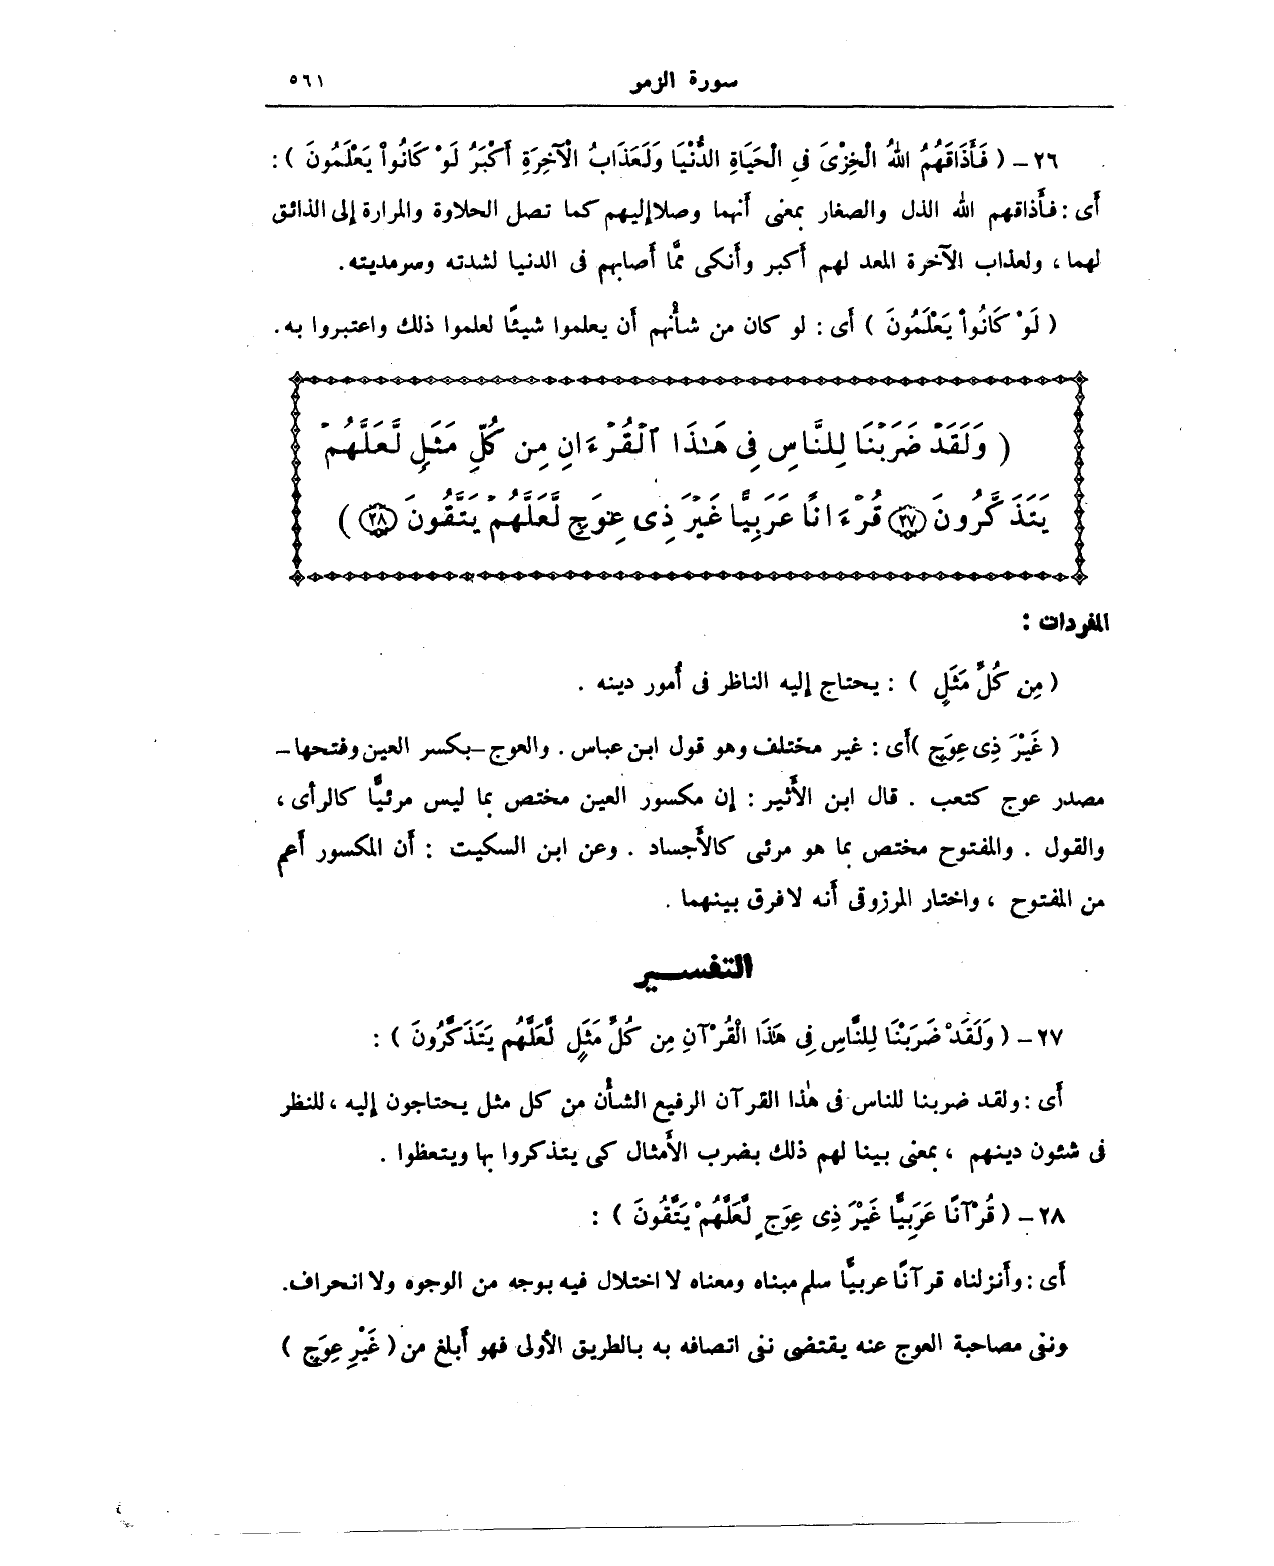 سورة الزمر ٥٦١
٢٦ – ( فَأَذَاقَهُمُ اللهُ الْخِزْىَ فِى الْحَيَاةِ الدُّنْيَا وَلَعَذَابُ الْآخِرَةِ أَكْبَرُ لَوْ كَانُواْ يَعْلَمُونَ ) :
أى : فأذاقهم الله الذل والصغار بمعنى أنهما وصلا إليهم كما تصل الحلاوة والمرارة إلى الذائق
لهما ، ولعذاب الآخرة المعد لهم أكبر وأنكى ممَّا أصابهم فى الدنيا لشدته وسرمديته .
( لَوْ كَانُواْ يَعْلَمُونَ ) أى : لو كان من شأنهم أن يعلموا شيئًا لعلموا ذلك واعتبروا به .
( وَلَقَدْ ضَرَبْنَا لِلنَّاسِ فِى هَـٰذَا ٱلْقُرْءَانِ مِن كُلِّ مَثَلٍ لَّعَلَّهُمْ
يَتَذَكَّرُونَ ٢٧ قُرْءَانًا عَرَبِيًّا غَيْرَ ذِى عِوَجٍ لَّعَلَّهُمْ يَتَّقُونَ ٢٨ )
المفردات :
( مِن كُلِّ مَثَلٍ ) : يحتاج إليه الناظر فى أُمور دينه .
( غَيْرَ ذِى عِوَجٍ ) أى : غير مختلف وهو قول ابن عباس . والعوج – بكسر العين وفتحها –
مصدر عوج كتعب . قال ابن الأَثير : إن مكسور العين مختص بما ليس مرئيًّا كالرأى ،
والقول . والمفتوح مختص بما هو مرئى كالأَجساد . وعن ابن السكيت : أَن المكسور أَعم
من المفتوح ، واختار المرزوقى أَنه لا فرق بينهما .
التفسير
٢٧ – ( وَلَقَدْ ضَرَبْنَا لِلنَّاسِ فِى هَذَا الْقُرْآنِ مِن كُلِّ مَثَلٍ لَّعَلَّهُم يَتَذَكَّرُونَ ) :
أَى : ولقد ضربنا للناس فى هٰذا القرآن الرفيع الشأن من كل مثل يحتاجون إليه ، للنظر
فى شئون دينهم ، بمعنى بينا لهم ذلك بضرب الأَمثال كى يتذكروا بها ويتعظوا .
٢٨ – ( قُرْآنًا عَرَبِيًّا غَيْرَ ذِى عِوَجٍ لَّعَلَّهُمْ يَتَّقُونَ ) :
أَى : وأَنزلناه قرآنًا عربيًّا سلم مبناه ومعناه لا اختلال فيه بوجه من الوجوه ولا انحراف .
ونفى مصاحبة العوج عنه يقتضى نفى اتصافه به بالطريق الأولى فهو أَبلغ من ( غَيْرِ عِوَجٍ )